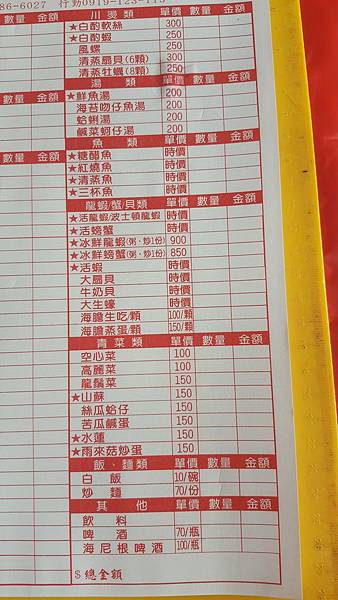 86-6027 行動0919-123-115
數量 金額 川燙類 單價 數量 金額
★白酌軟絲 300
★白酌蝦 250
風螺 250
清蒸扇貝(6顆) 300
清蒸牡蠣(8顆) 250
湯類 單價 數量 金額
★鮮魚湯 200
海苔吻仔魚湯 200
蛤蜊湯 200
鹹菜蚵仔湯 200
數量 金額 魚類 單價 數量 金額
★糖醋魚 時價
★紅燒魚 時價
★清蒸魚 時價
★三杯魚 時價
龍蝦/蟹/貝類 單價 數量 金額
★活龍蝦/波士頓龍蝦 時價
★活螃蟹 時價
★冰鮮龍蝦(粥.炒1份) 900
★冰鮮螃蟹(粥.炒1份) 850
★活蝦 時價
大扇貝 時價
牛奶貝 時價
大生蠔 時價
海膽生吃/顆 100/顆
海膽蒸蛋/顆 150/顆
青菜類 單價 數量 金額
空心菜 100
高麗菜 100
龍鬚菜 150
★山蘇 150
絲瓜蛤仔 150
苦瓜鹹蛋 150
★水蓮 150
★雨來菇炒蛋 150
飯、麵類 單價 數量 金額
白飯 10/碗
炒麵 70/份
其他 單價 數量 金額
飲料
啤酒 70/瓶
海尼根啤酒 100/瓶
$ 總金額